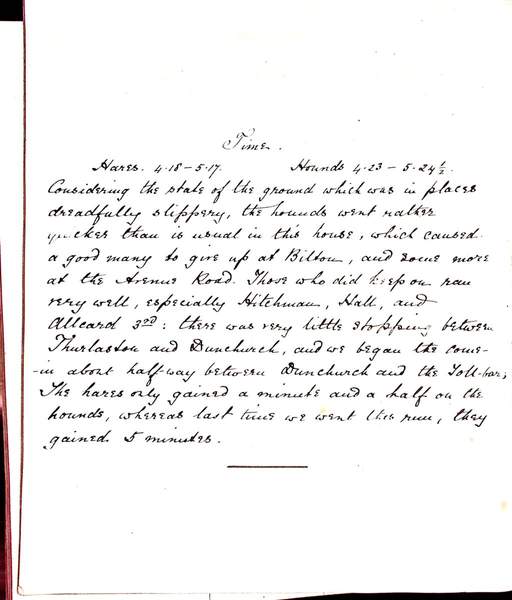 Time.
Hares. 4.18 – 5.17. Hounds 4.23 – 5.24½.
Considering the state of the ground which was in places
dreadfully slippery, the hounds went rather
quicker than is usual in this house, which caused
a good many to give up at Bilton, and some more
at the Avenue Road. Those who did keep on ran
very well, especially Hitchman, Hall, and
Alleard 3rd: there was very little stopping between
Thurlaston and Dunchurch, and we began the come-
-in about half way between Dunchurch and the Toll-bar;
The hares only gained a minute and a half on the
hounds, whereas last time we went this run, they
gained 5 minutes.